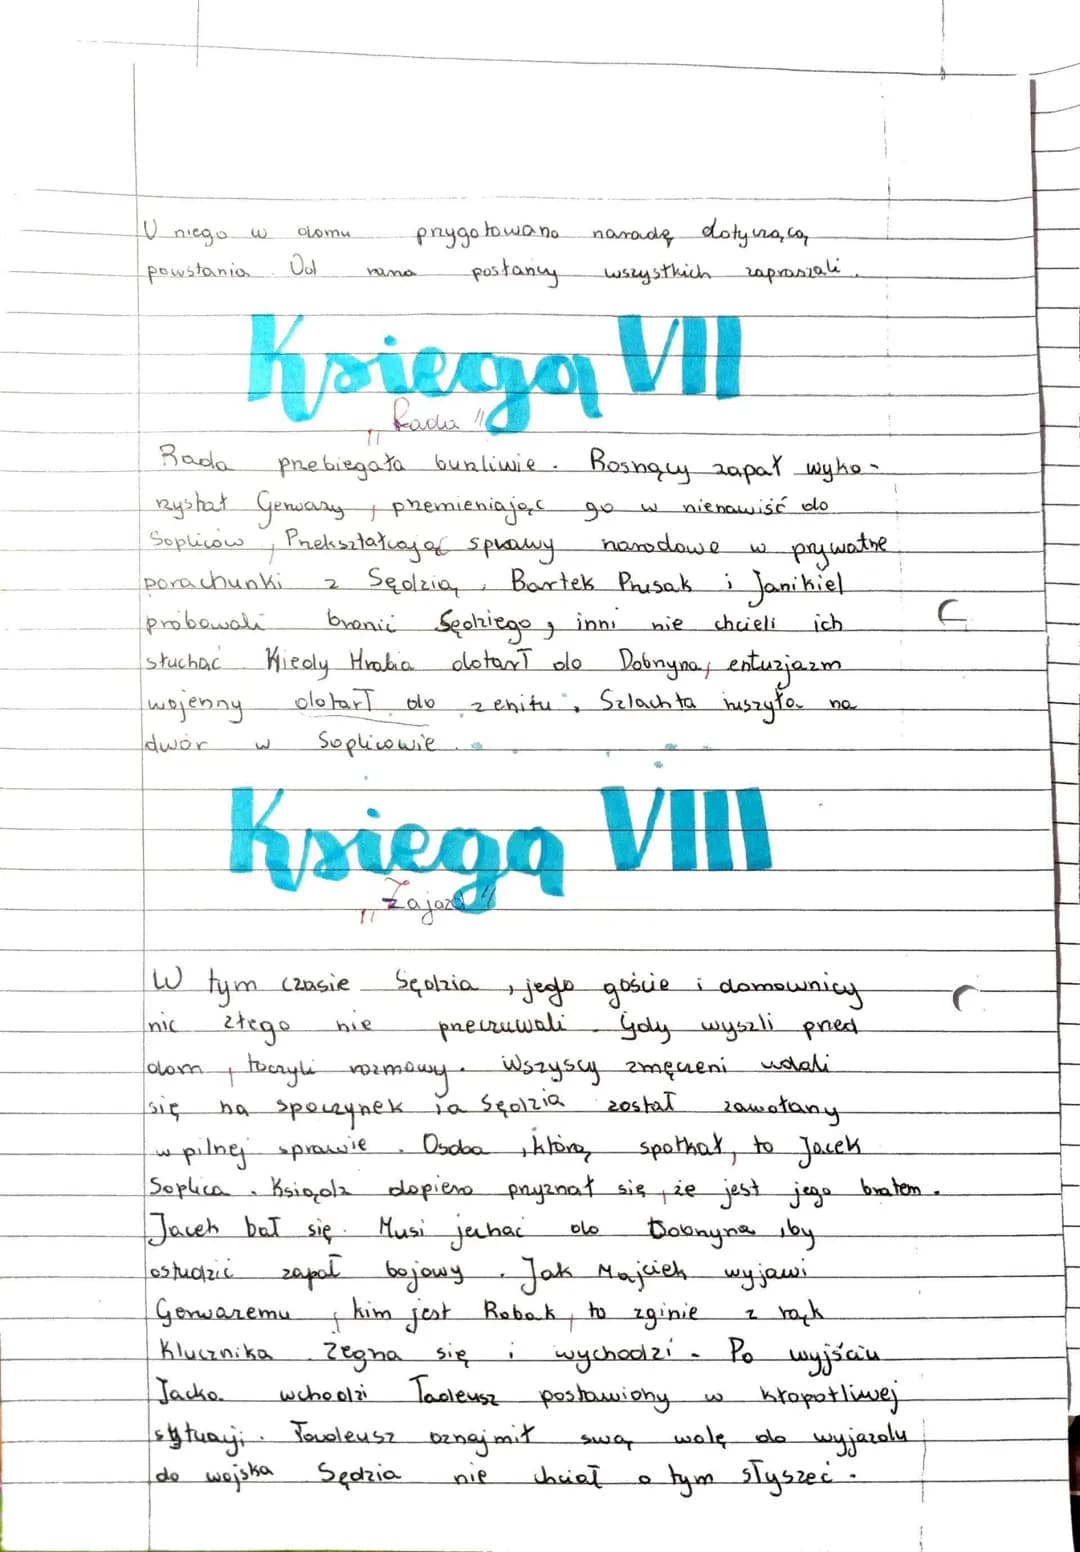 U niego w domu przygotowano naradę dotyczącą
powstania. Od rana posłańcy wszystkich zapraszali.
Księga VII
„Rada"
Rada przebiegała burzliwie. Rosnący zapał wyko-
rzystał Gerwazy, przemieniając go w nienawiść do
Sopliców, Przekształcając sprawy narodowe w prywatne
porachunki z Sędzią, Bartek Prusak i Jankiel
próbowali bronić Sędziego, inni nie chcieli ich
słuchać. Kiedy Hrabia dotarł do Dobrzyna, entuzjazm
wojenny dotarł do zenitu, Szlachta ruszyła na
dwór w Soplicowie.
Księga VIII
„Zajazd"
W tym czasie Sędzia, jego goście i domownicy
nic złego nie przeczuwali. Gdy wyszli przed
dom, toczyli rozmowy. Wszyscy zmęczeni udali
się na spoczynek ia Sędzia został zawołany
w pilnej sprawie. Osoba, którą spotkał, to Jacek
Soplica. Ksiądz dopiero przyznał się, że jest jego bratem.
Jacek bał się. Musi jechać do Dobrzyna, by
ostudzić zapał bojowy. Jak Majciek wyjawi
Gerwazemu, kim jest Robak, to zginie z rąk
Klucznika. Żegna się i wychodzi. Po wyjściu
Jacka wchodzi Tadeusz postawiony w kłopotliwej
sytuacji. Tadeusz oznajmił swą wolę do wyjazdu
do wojska Sędzia nie chciał o tym słyszeć.